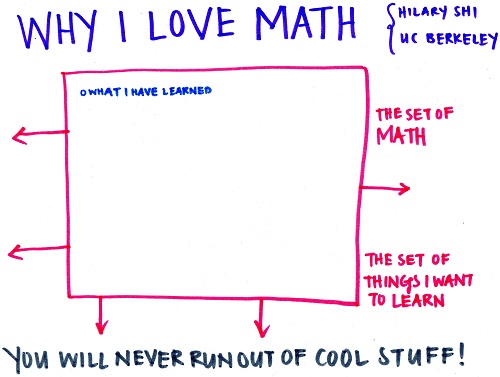 WHY I LOVE MATH
HILARY SHI
UC BERKELEY
WHAT I HAVE LEARNED
THE SET OF
MATH
THE SET OF
THINGS I WANT
TO LEARN
YOU WILL NEVER RUN OUT OF COOL STUFF!